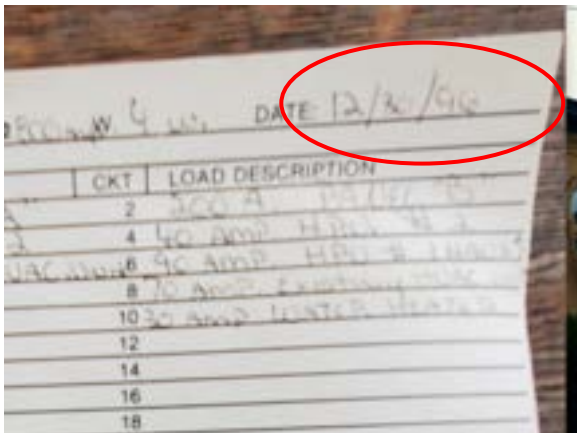 W 4 DATE: 12/30/96
CKT LOAD DESCRIPTION
2 200 A PANEL "B"
4 40 AMP HPU # 2
6 90 AMP HPU #
8 70 AMP Existing HVAC
10 30 AMP WATER HEATER
12
14
16
18